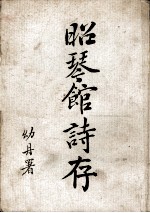 昭琴館詩存
幼丹署